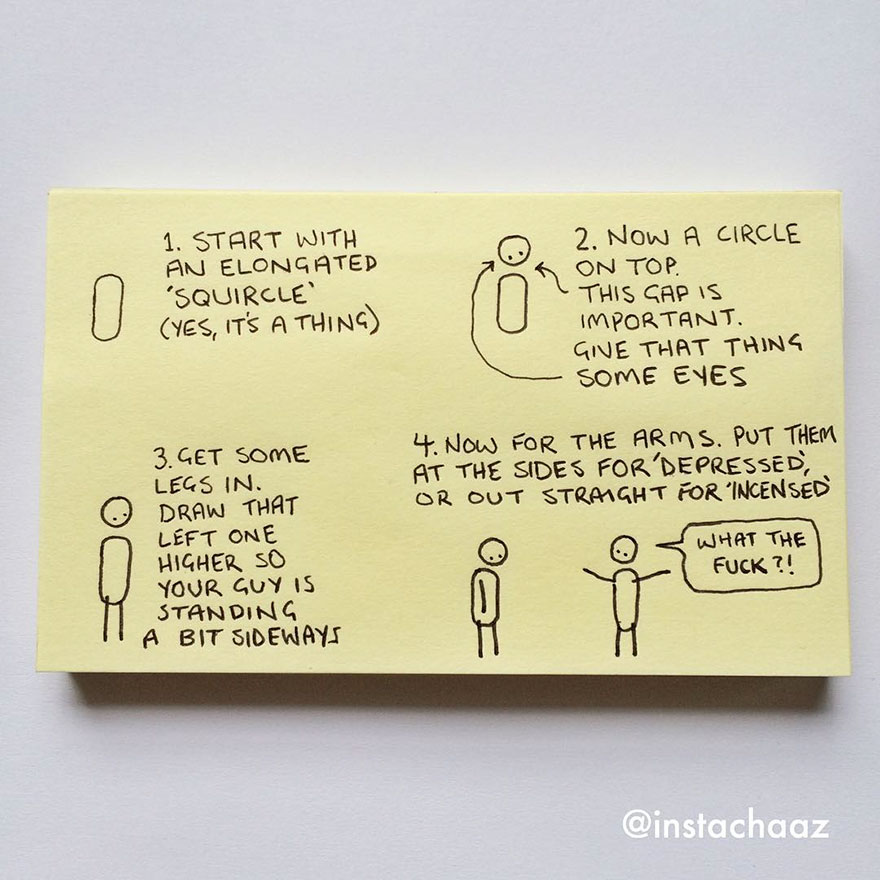 1. START WITH
AN ELONGATED
'SQUIRCLE'
(YES, IT'S A THING)
2. NOW A CIRCLE
ON TOP.
THIS GAP IS
IMPORTANT.
GIVE THAT THING
SOME EYES
3. GET SOME
LEGS IN.
DRAW THAT
LEFT ONE
HIGHER SO
YOUR GUY IS
STANDING
A BIT SIDEWAYS
4. NOW FOR THE ARMS. PUT THEM
AT THE SIDES FOR 'DEPRESSED',
OR OUT STRAIGHT FOR 'INCENSED'
WHAT THE
FUCK?!
@instachaaz